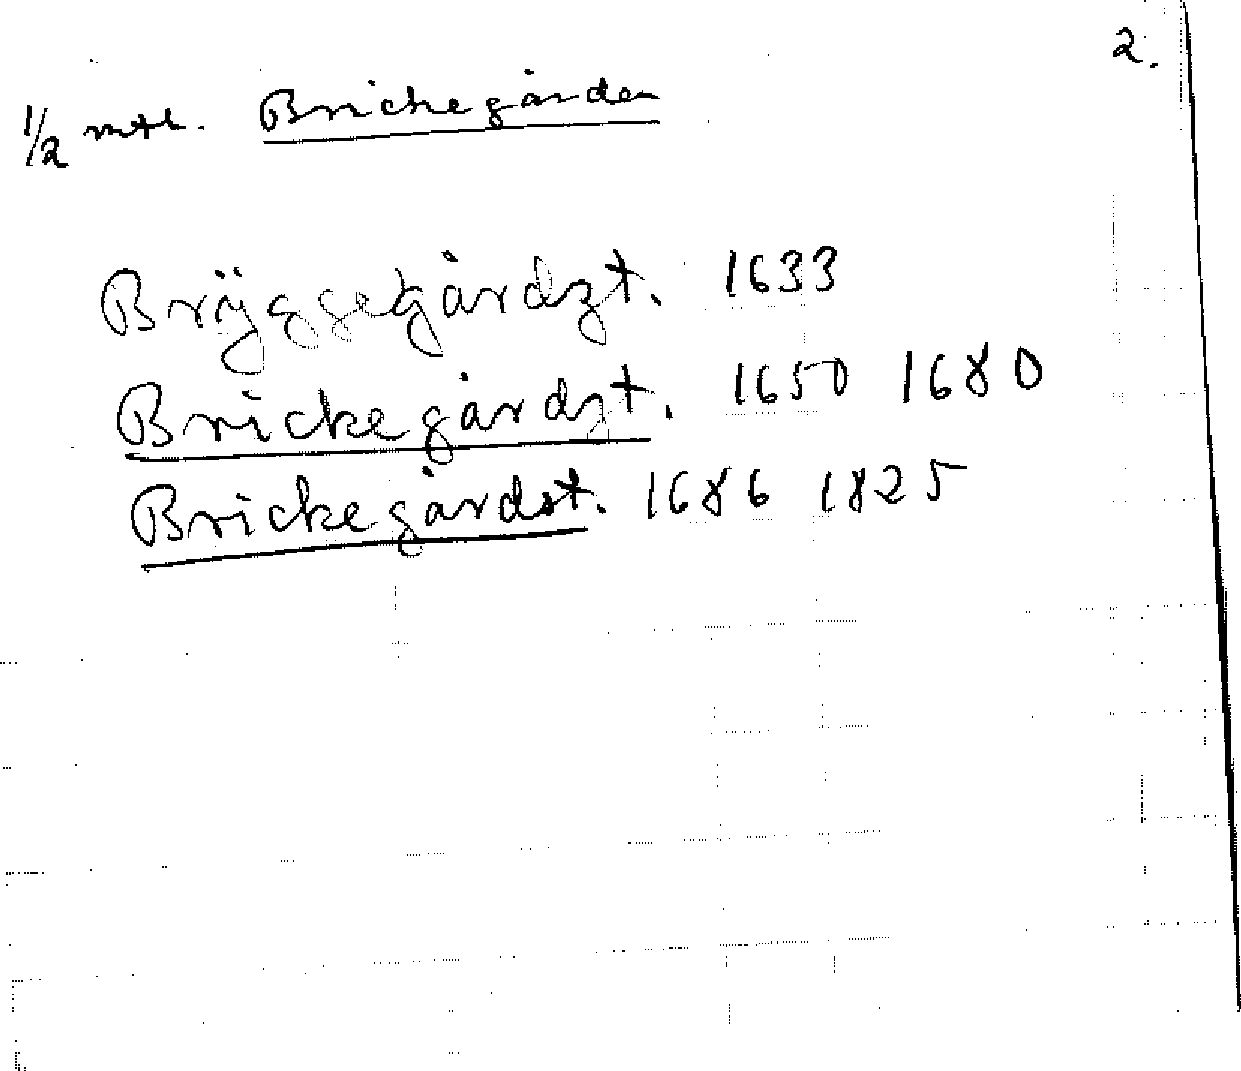 2.
1/2 mtl. Brickegården
Brÿggsegårdzt. 1633
Brickegårdzt. 1650 1680
Brickegårdst. 1686 1825